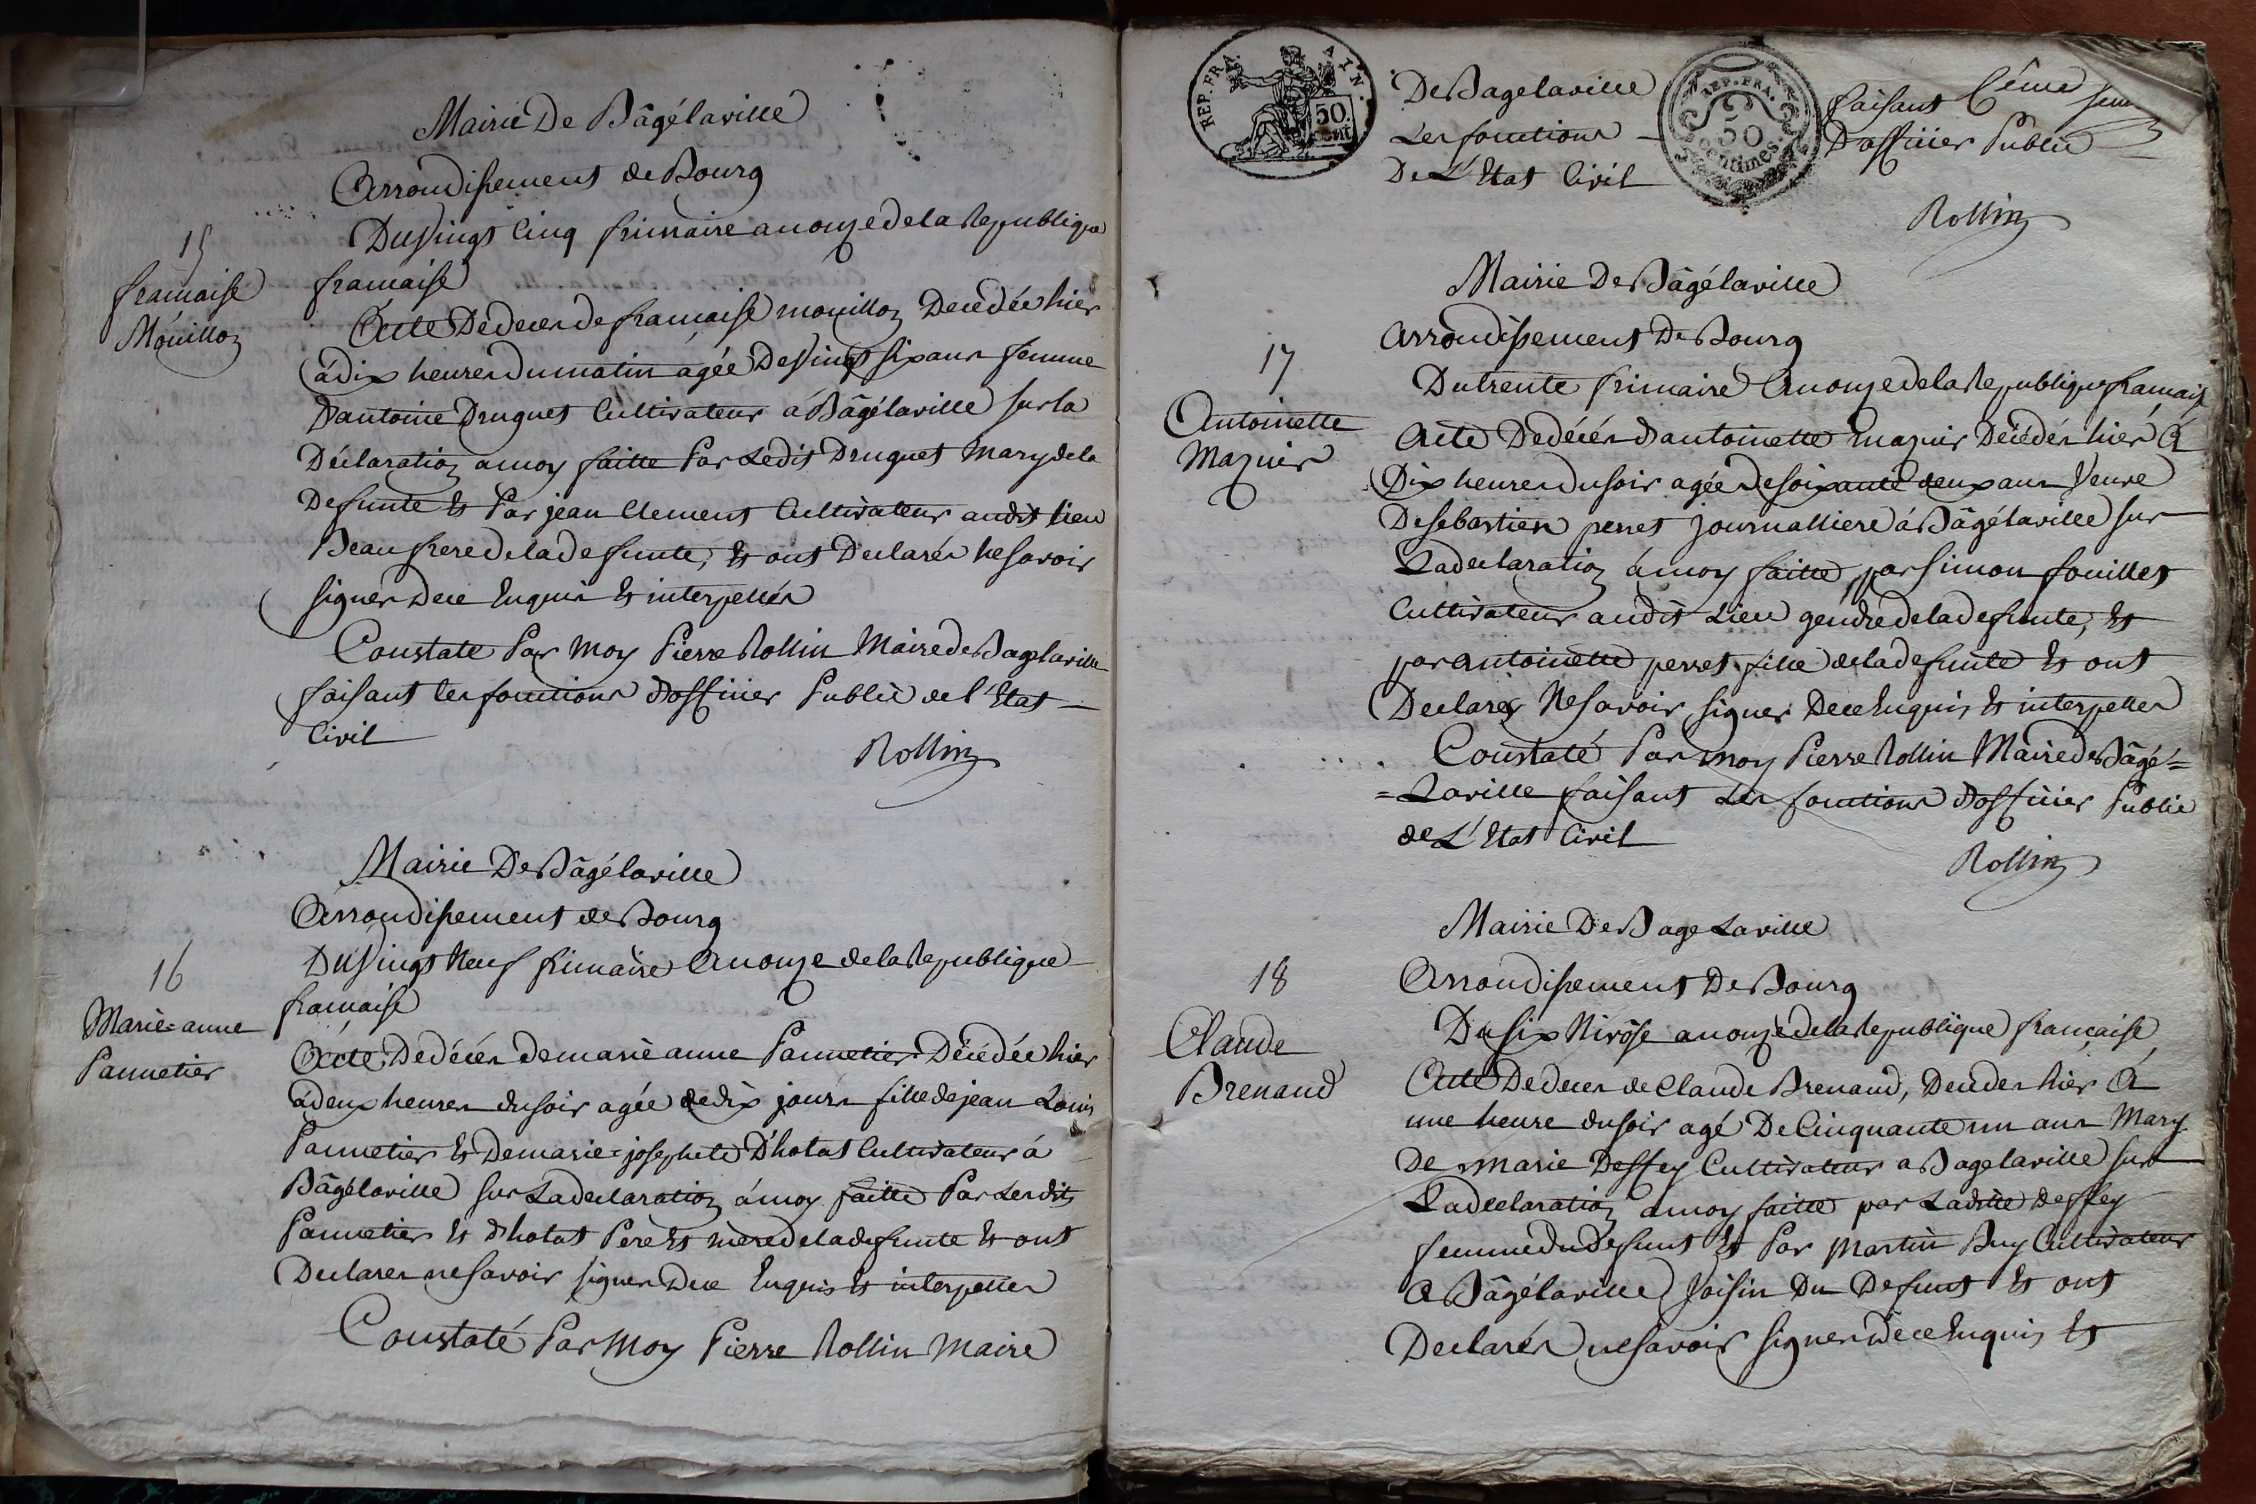 Mairie De Bâgélaville
Arrondissement de Bourg
15
Du Vingt Cinq frimaire an onze de la Republique
francaise
francaise
Mouillon
Acte De deces de francaise mouillon Decedée hier
à dix heures du matin agée De Vingt six ans femme
D'antoine Druguet Cultivateur á Bâgélaville sur la
Déclaration a moy faitte Par Ledit Druguet Mary de la
Defunte Et Par jean Clement Cultivateur audit lieu
Beaufrere de la defunte, Et ont Declarés ne savoir
signer De ce Enquis Et interpellés
Constate Par Moy Pierre Rollin Maire de Bagelaville
faisant les fonctions D'officier Public de l'Etat
Civil
Rollin
Mairie De Bâgélaville
Arrondissement de Bourg
16
Du Vingt Neuf frimaire An onze de la Republique
francaise
Marie=anne
Pannetier
Acte De décés de marie anne Pannetier Décédée hier
à deux heures du soir agée de dix jours fille de jean Louis
Pannetier Et De marie=josephete D'hotat Cultivateur á
Bâgélaville sur La declaration á moy faitte Par Lesdits
Pannetier Et d'hotat Pere Et mère de la defunte Et ont
Declarer ne savoir signer De ce Enquis Et interpeller
Constaté Par Moy Pierre Rollin Maire
REP. FRA. 50. cent
De Bagelaville
REP. FRA. 50 centimes
faisant
Les fonctions
D'officier Public
De L'Etat Civil
Rollin
Mairie De Bâgélaville
Arrondissement De Bourg
17
Du trente frimaire An onze de la Republique francaise
Antoinette
Mazuir
Acte De décés D'antoinette Mazuir Décédés hier à
Dix heures du soir agée de soixante deux ans Veuve
De sebastien perret journalliere á Bâgélaville sur
La declaration á moy faitte par simon fouillet
Cultivateur audit Lieu gendre de la defunte, Et
par antoinette perret fille de la defunte Et ont
Declarés Ne savoir signer De ce Enquis Et interpeller
Constaté Par moy Pierre Rollin Maire de Bâgé=
=Laville faisant Les fonctions D'officier Public
de L'Etat Civil
Rollin
Mairie De Bage Laville
18
Arrondissement De Bourg
Du six Nivôse an onze de la Republique française
Claude
Brenaud
Acte De deces de Claude Brenaud, Decedés hier à
une heure du soir agé De Cinquante un ans Mary
De marie Deffey Cultivateur a Bagelaville sur
La declaration a moy faitte par Laditte deffey
femme du defunt Et Par Martin Buy Cultivateur
A Bâgélaville Voisin Du Defunt Et ont
Declarés ne savoir signer De ce Enquis Et